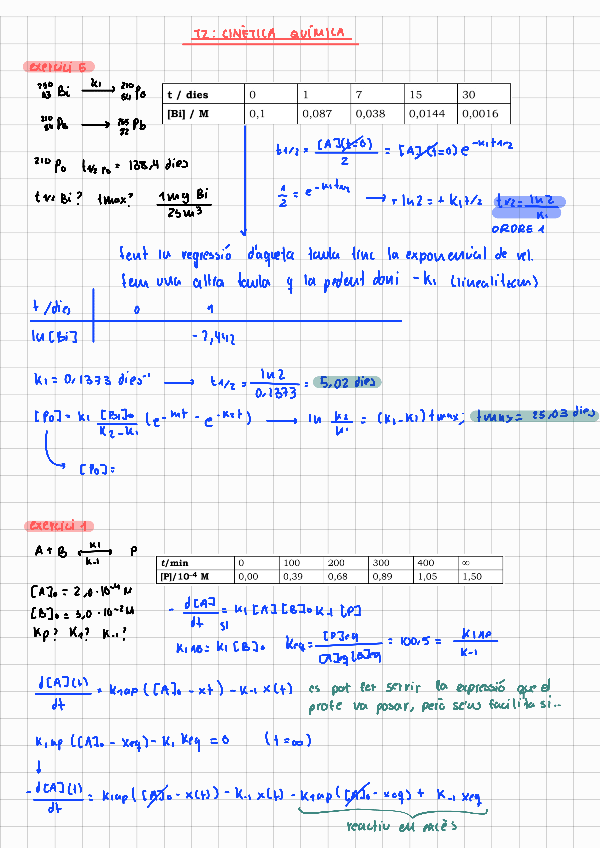 T2: CINÈTICA QUÍMICA
exercici 5
²¹⁰₈₃Bi —k₁→ ²¹⁰₈₄Po
²¹⁰₈₄Po → ²⁰⁵₈₂Pb
²¹⁰Po t₁/₂ Po = 138,4 dies
t₁/₂ Bi? tmax? 1mg Bi / 25m³
t / dies 0 1 7 15 30
[Bi] / M 0,1 0,087 0,038 0,0144 0,0016
t₁/₂ = [A](t=0) / 2 = [A](t=0) e^-k₁t₁/₂
1/2 = e^-k₁t₁/₂ → + ln2 = + k₁t/₂ t₁/₂ = ln2 / k₁
ORDRE 1
fent la regressió d'aqueta taula trec la exponencial de vel.
fem una altra taula y la pedent doni -k₁ (linealitzem)
t / dies 0 1
ln [Bi] -2,442
k₁ = 0,1373 dies⁻¹ → t₁/₂ = ln2 / 0,1373 = 5,02 dies
[Po] = k₁ [Bi]₀ / k₂-k₁ (e^-k₁t - e^-k₂t) → ln k₂/k₁ = (k₂-k₁) tmax; tmax = 25,03 dies
[Po] =
exercici 1
A + B k₁ ⇄ k₋₁ P
t/min 0 100 200 300 400 ∞
[P]/10⁻⁴ M 0,00 0,39 0,68 0,89 1,05 1,50
[A]₀ = 2,0·10⁻⁴ M
[B]₀ = 3,0·10⁻² M
Kp? K₁? K₋₁?
- d[A] / dt = k₁ [A][B]₀ k₋₁ [P]
si
k₁ap = k₁ [B]₀ Keq = [P]eq / [A]eq [B]eq = 100,5 = k₁ap / k₋₁
d[A](t) / dt = k₁ap ([A]₀ - xt) - k₋₁ x(t)
es pot fer servir la expressió que el
profe va posar, però se'ns facilita si...
k₁ap ([A]₀ - xeq) - k₁ Xeq = 0 (t=∞)
- d[A](t) / dt = k₁ap ([A]₀ - x(t)) - k₋₁ x(t) - k₁ap ([A]₀ - xeq) + k₋₁ xeq
reactiu en excés